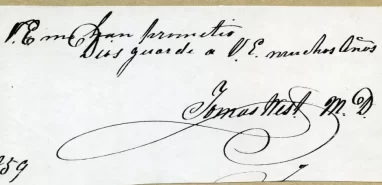 V.E me han prometio
Dios guarde a V.E. muchos Años
Tomas West M.D.
59